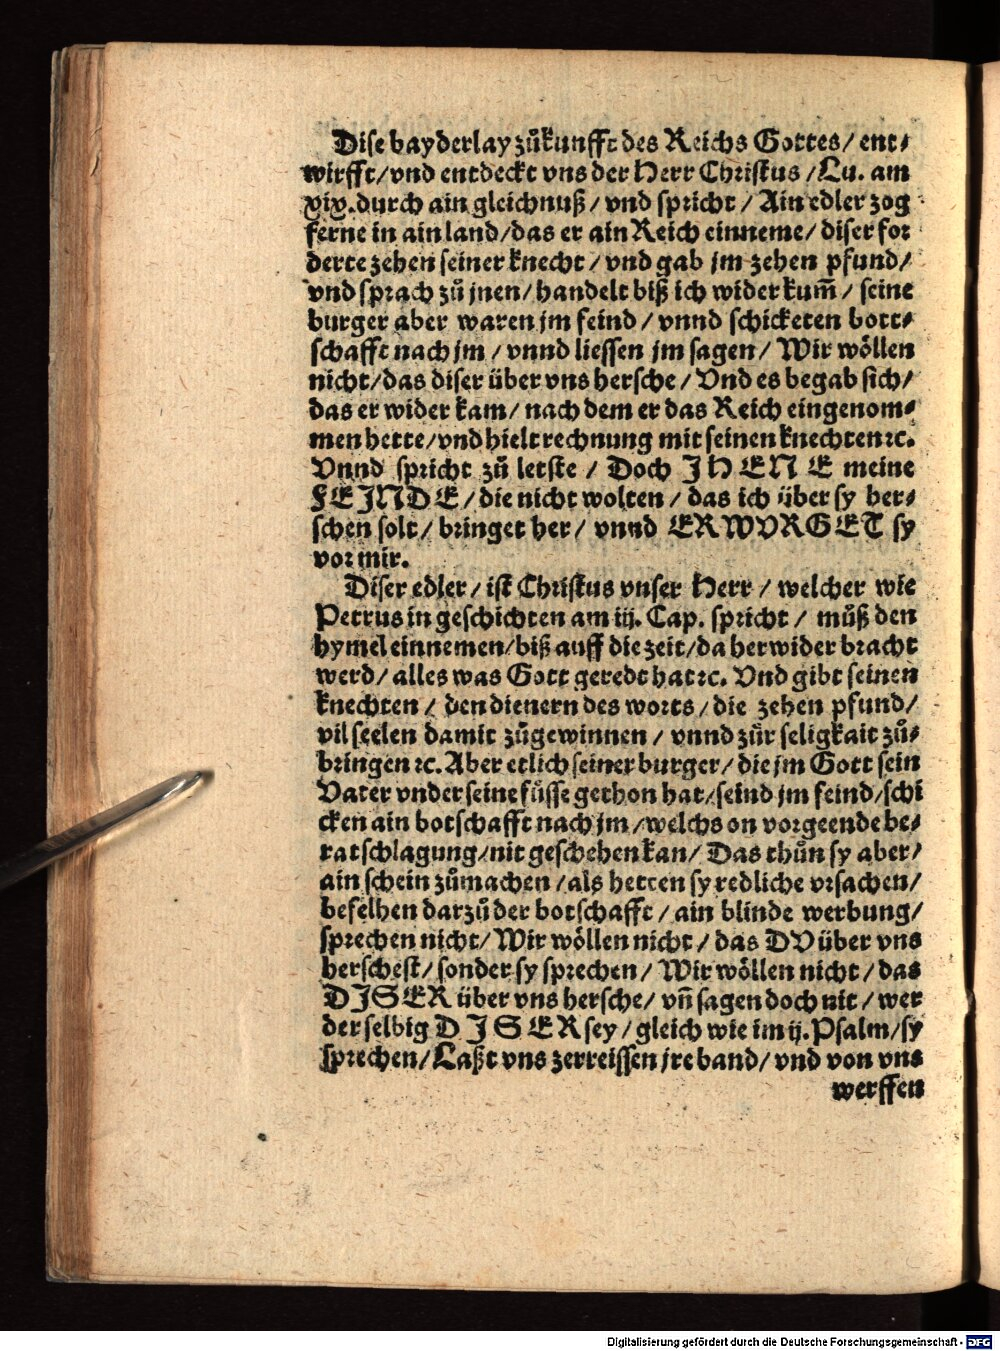 Dise bayderlay zůkunfft des Reichs Gottes / ent⸗
wirfft / vnd entdeckt vns der Herr Christus / Lu. am
xix. durch ain gleichnuß / vnd spricht / Ain edler zog
ferne in ain land / das er ain Reich einneme / diser for
derte zehen seiner knecht / vnd gab jm zehen pfund /
vnd sprach zů jnen / handelt biß ich wider kum̃ / seine
burger aber waren jm feind / vnnd schicketen bott⸗
schafft nach jm / vnnd liessen jm sagen / Wir wöllen
nicht / das diser über vns hersche / Vnd es begab sich /
das er wider kam / nach dem er das Reich eingenom⸗
men hette / vnd hielt rechnung mit seinen knechten ꝛc.
Vnnd spricht zů letste / Doch JHENE meine
FEJNDE / die nicht wolten / das ich über sy her⸗
schen solt / bringet her / vnnd ERWVRGET sy
vor mir.
Diser edler / ist Christus vnser Herr / welcher wie
Petrus in geschichten am iij. Cap. spricht / můß den
hymel einnemen / biß auff die zeit / da herwider bracht
werd / alles was Gott geredt hat ꝛc. Vnd gibt seinen
knechten / den dienern des worts / die zehen pfund /
vil seelen damit zůgewinnen / vnnd zůr seligkait zů⸗
bringen ꝛc. Aber etlich seiner burger / die jm Gott sein
Vater vnder seine füsse gethon hat / seind jm feind / schi
cken ain botschafft nach jm / welchs on vorgeende be⸗
ratschlagung / nit geschehen kan / Das thůn sy aber /
ain schein zůmachen / als hetten sy redliche vrsachen /
befelhen darzů der botschafft / ain blinde werbung /
sprechen nicht / Wir wöllen nicht / das DV über vns
herschest / sonder sy sprechen / Wir wöllen nicht / das
DJSER über vns hersche / vñ sagen doch nit / wer
der selbig DJSER sey / gleich wie im ij. Psalm / sy
sprechen / Laßt vns zerreissen jre band / vnd von vns
werffen
Digitalisierung gefördert durch die Deutsche Forschungsgemeinschaft - DFG